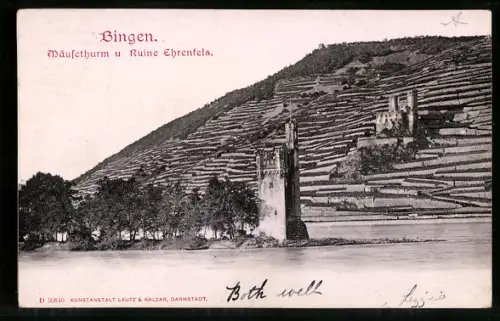 Bingen.
Mäusethurm u Ruine Ehrenfels.
KUNSTANSTALT LAUTZ & BALZAR, DARMSTADT.
Both well
Lizzie